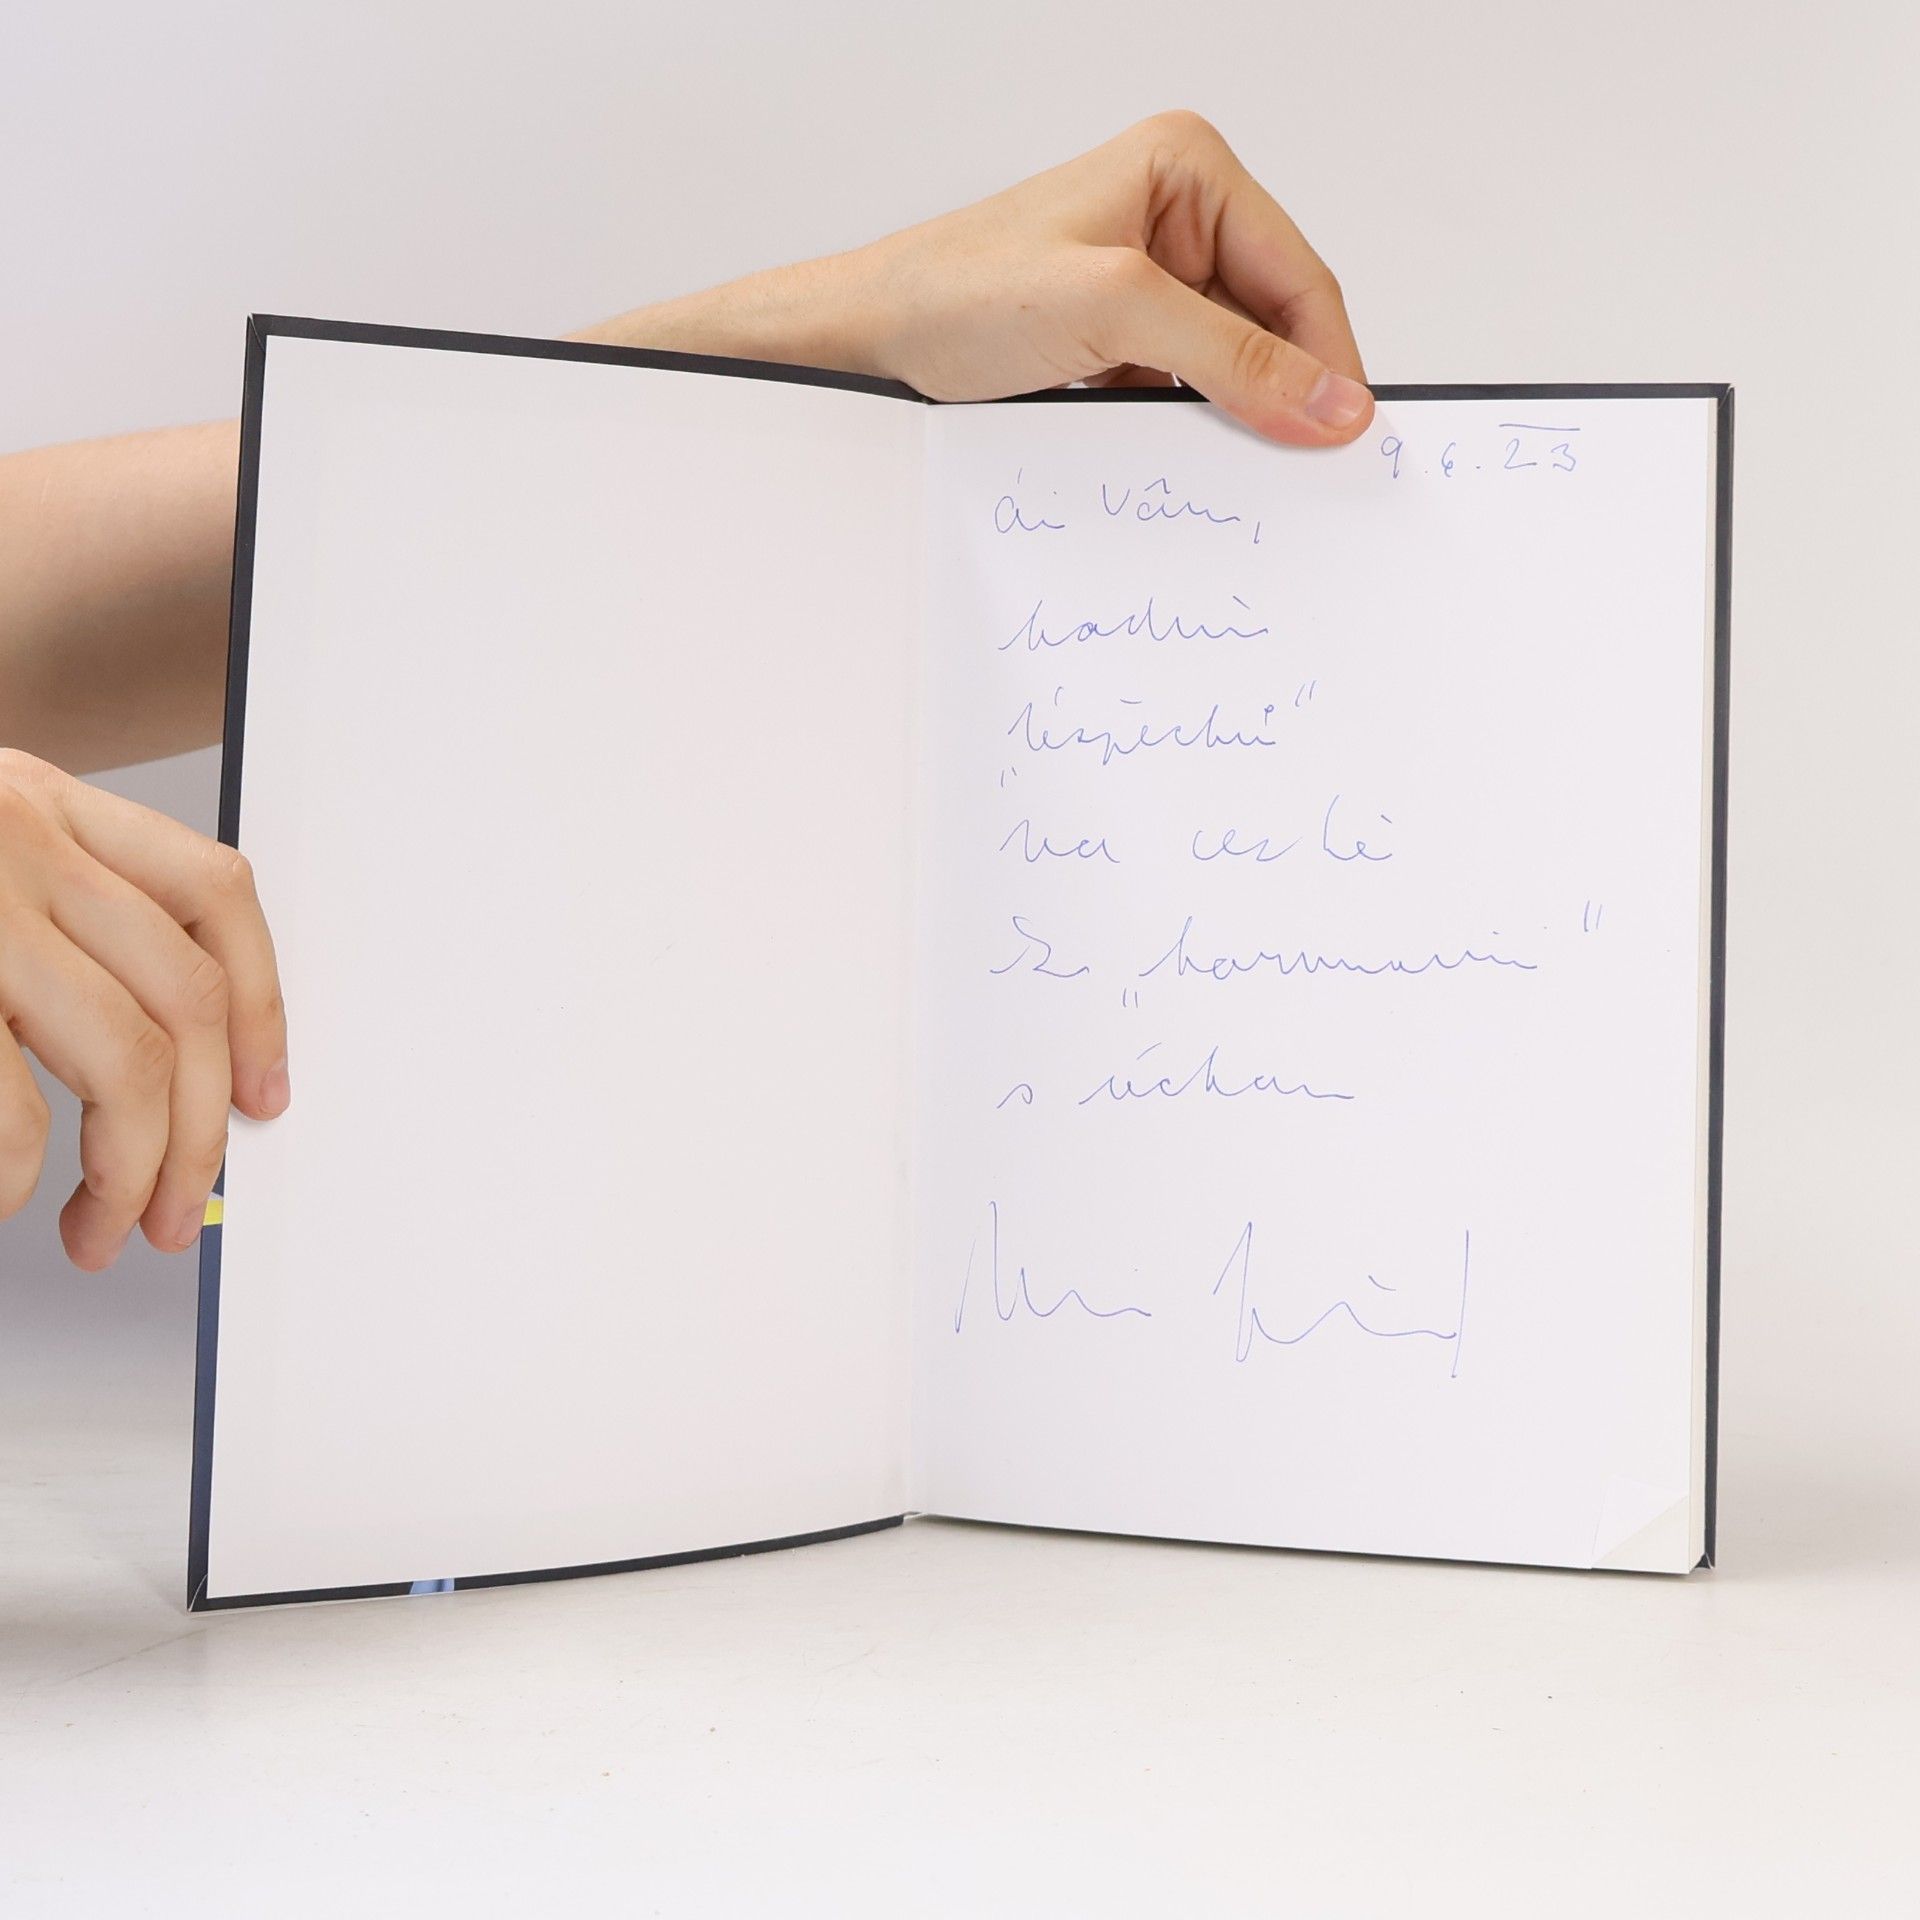 9.6.23
ái Vân,
hodně
"úspěchů"
na cestě
za "harmonií"
s úctou